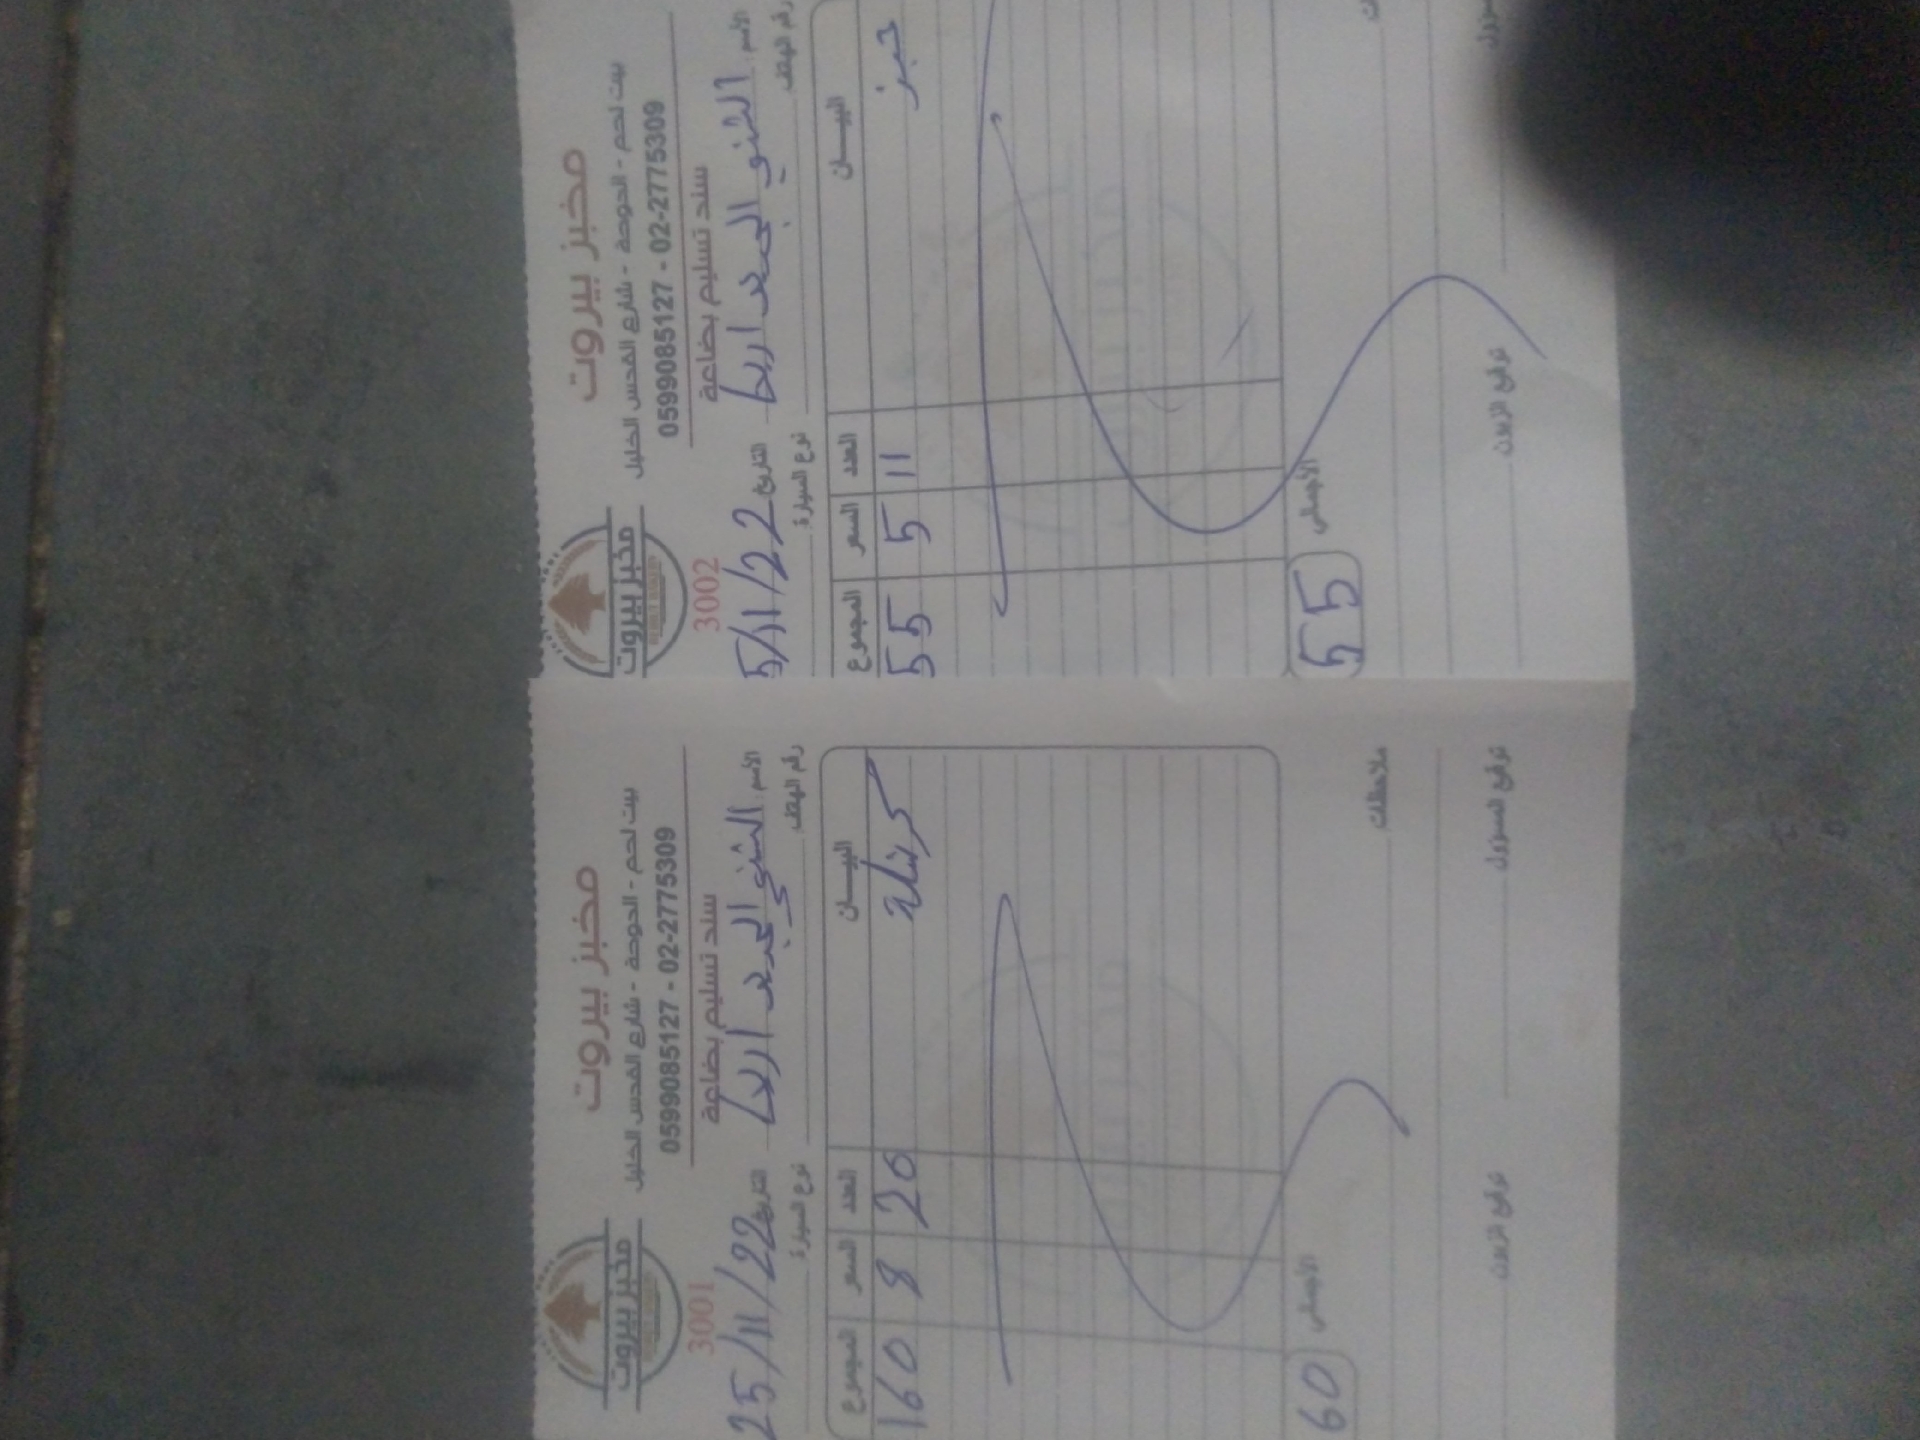 مخبز بيروت
بيت لحم - الدوحة - شارع القدس الخليل
0599085127 - 02-2775309
مخبز بيروت
سند تسليم بضاعة
3001
الأسم:
التاريخ 25/11/22
رقم الهاتف
نوع السيارة
البيــــان العدد السعر المجموع
كرشلة 20 8 160
الأجمالي 60
ملاحظات
توقيع المسؤول
توقيع الزبون
مخبز بيروت
بيت لحم - الدوحة - شارع القدس الخليل
0599085127 - 02-2775309
مخبز بيروت
سند تسليم بضاعة
3002
الأسم:
التاريخ 5/11/22
رقم الهاتف
نوع السيارة
البيــــان العدد السعر المجموع
خبز 11 5 55
الأجمالي 55
توقيع الزبون